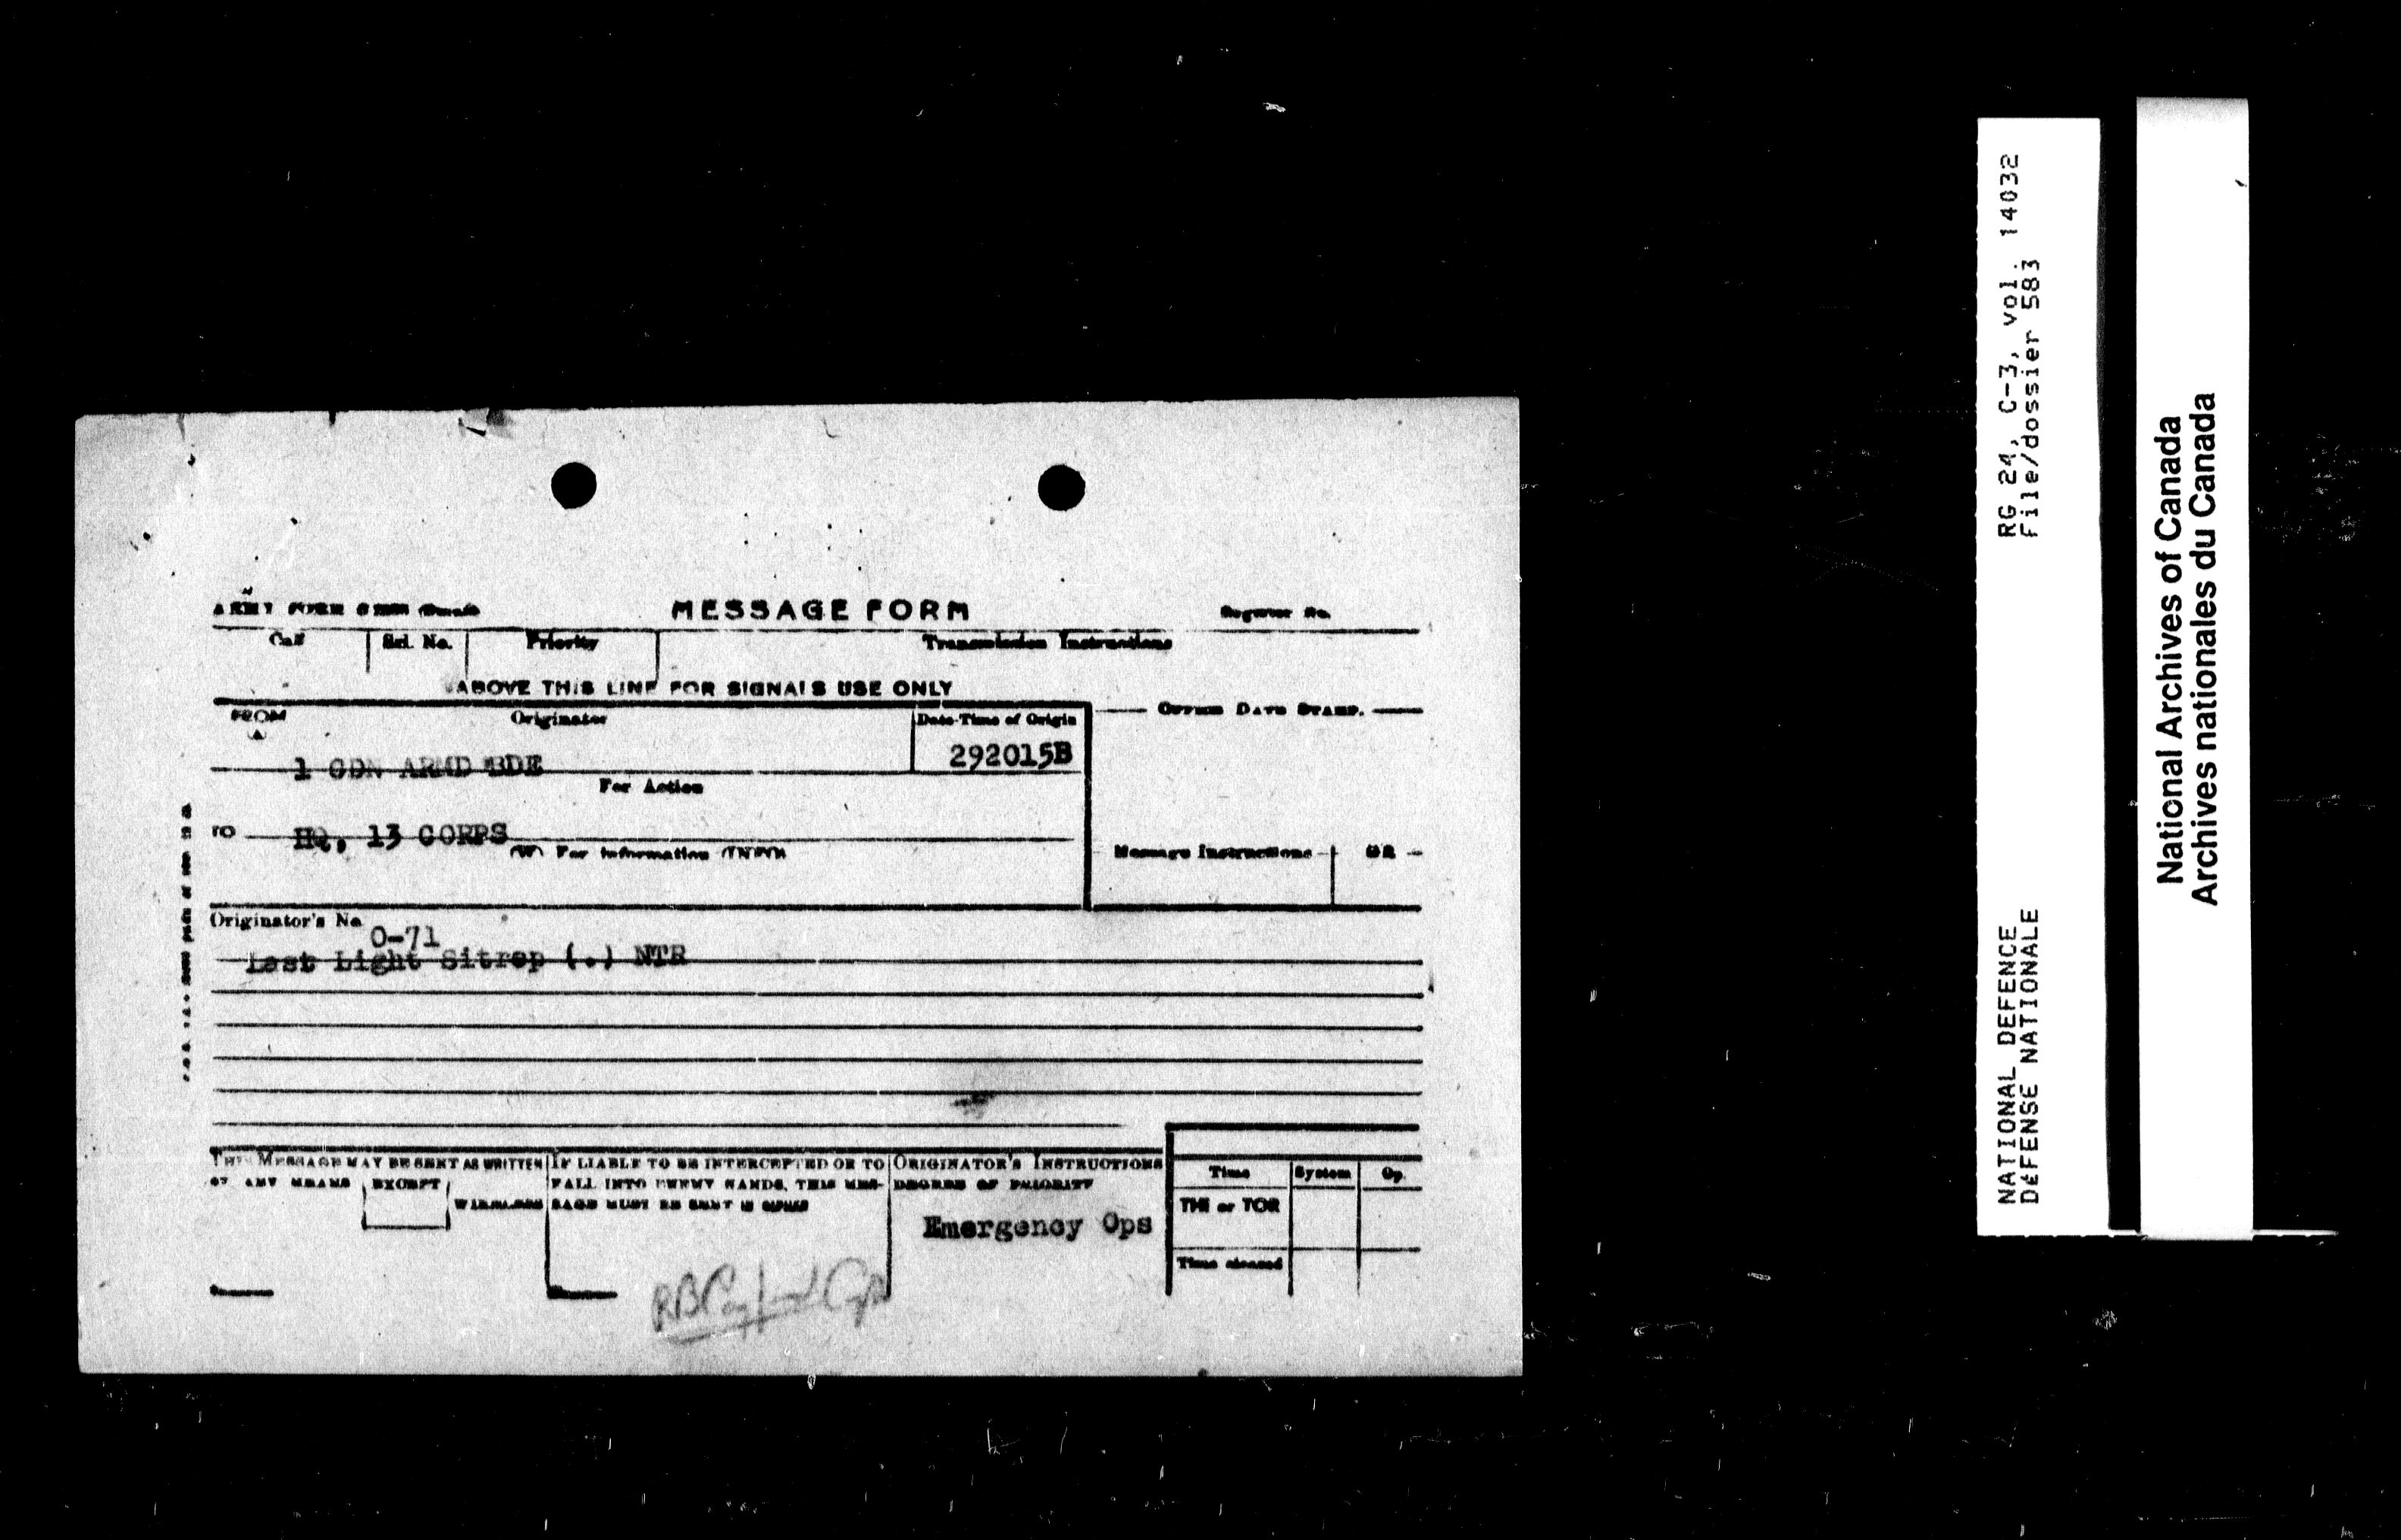 MESSAGE FORM
Call Srl. No. Priority Transmission Instructions
ABOVE THIS LINE FOR SIGNALS USE ONLY
FROM Originator Date-Time of Origin OFFICE DATE STAMP.
(A)
1 CDN ARMD BDE 292015B
For Action
TO HQ, 13 CORPS
(W) For Information (INFO) Message Instructions GR
Originator's No
O-71
Last Light Sitrep (.) NTR
THIS MESSAGE MAY BE SENT AS WRITTEN
BY ANY MEANS EXCEPT
WIRELESS
IF LIABLE TO BE INTERCEPTED OR TO
FALL INTO ENEMY HANDS, THIS MES-
SAGE MUST BE SENT IN CIPHER
ORIGINATOR'S INSTRUCTIONS
DEGREE OF PRIORITY
Emergency Ops
Time System Op.
THI or TOR
Time cleared
NATIONAL DEFENCE RG 24, C-3, vol. 14032
DEFENSE NATIONALE File/dossier 583
National Archives of Canada
Archives nationales du Canada